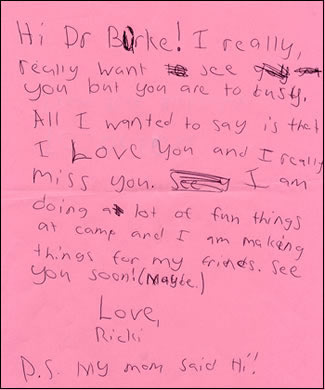 Hi Dr Burke! I really,
really want see
you but you are to busy.
All I wanted to say is that
I Love You and I really
miss you. I am
doing a lot of fun things
at camp and I am making
things for my friends. See
you soon! (Maybe.)
Love,
Ricki
P.S. My mom said Hi!!